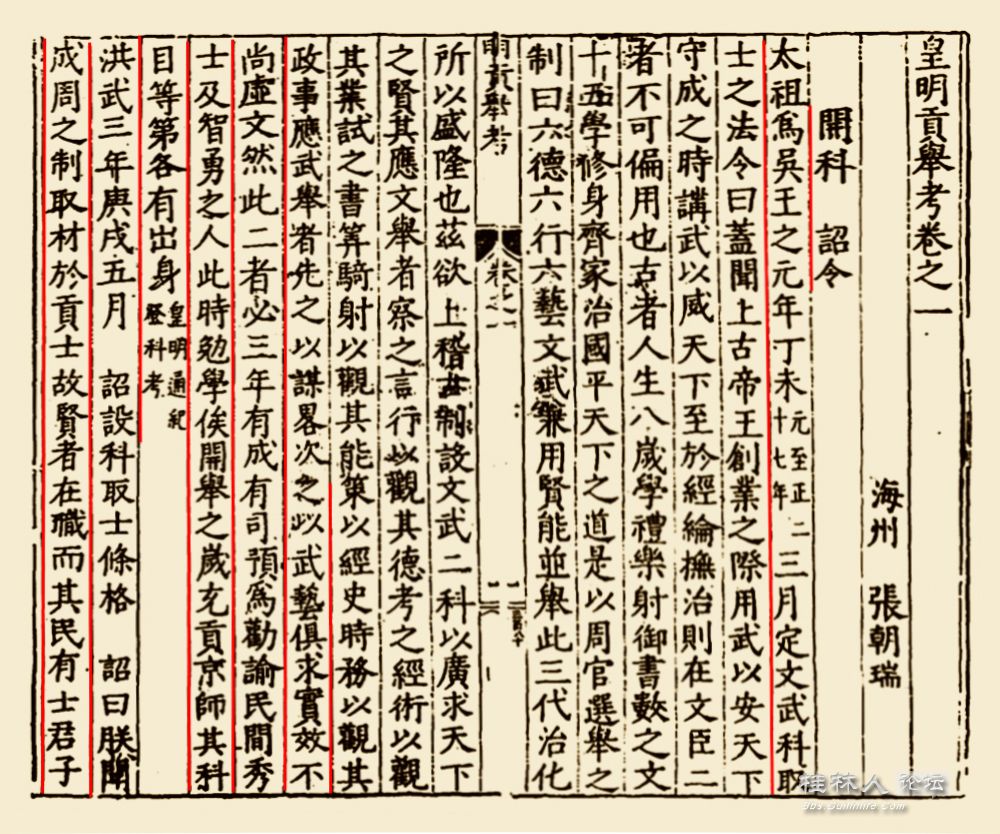 皇明貢舉考卷之一
海州 張朝瑞
開科 詔令
太祖爲吳王之元年丁未元至正二十七年三月定文武科取
士之法令曰蓋聞上古帝王創業之際用武以安天下
守成之時講武以威天下至於經綸撫治則在文臣二
者不可偏用也古者人生八歲學禮樂射御書數之文
十五學修身齊家治國平天下之道是以周官選舉之
制曰六德六行六藝文武兼用賢能並舉此三代治化
明貢舉考 卷之一
所以盛隆也茲欲上稽古制設文武二科以廣求天下
之賢其應文舉者察之言行以觀其德考之經術以觀
其業試之書筭騎射以觀其能策以經史時務以觀其
政事應武舉者先之以謀畧次之以武藝俱求實效不
尚虛文然此二者必三年有成有司預爲勸諭民間秀
士及智勇之人此時勉學俟開舉之歲充貢京師其科
目等第各有出身皇明通紀歷科考
洪武三年庚戌五月 詔設科取士條格 詔曰朕聞
成周之制取材於貢士故賢者在職而其民有士君子
桂林人 论坛